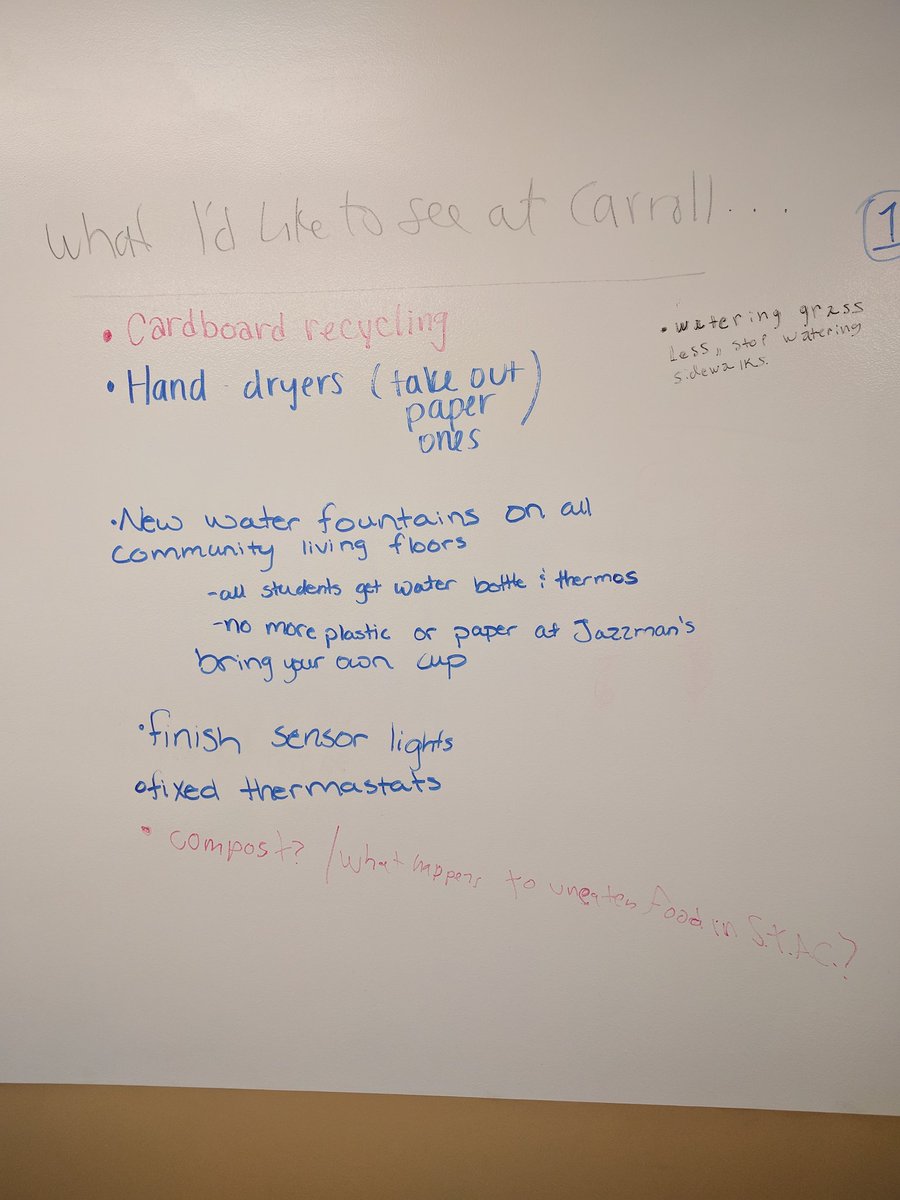 What I'd Like to see at Carroll...
1
• Cardboard recycling
• Hand dryers (take out
paper
ones)
• watering grass
less, stop watering
sidewalks.
•New water fountains on all
community living floors
-all students get water bottle & thermos
-no more plastic or paper at Jazzman's
bring your own cup
•finish sensor lights
•fixed thermastats
• compost? /what happens to uneaten food in S.T.A.C.?